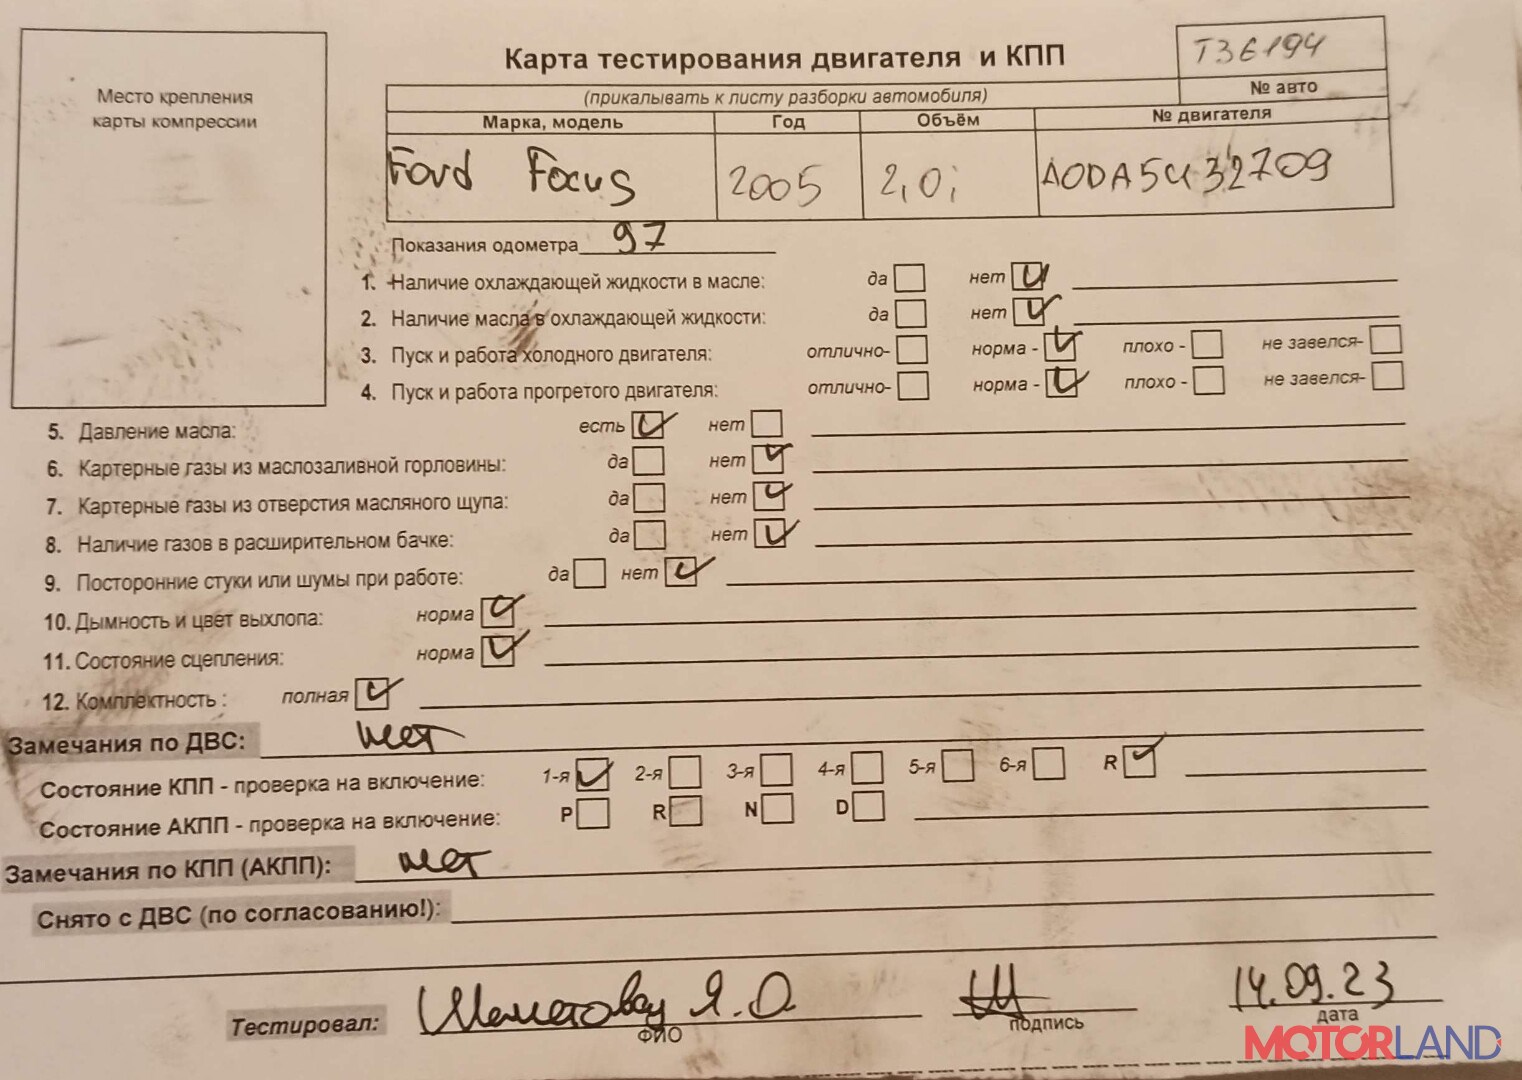 Место крепления
карты компрессии
Карта тестирования двигателя и КПП
Т36194
(прикалывать к листу разборки автомобиля)
№ авто
Марка, модель Год Объём № двигателя
Ford Focus 2005 2,0i
Показания одометра 97
1. Наличие охлаждающей жидкости в масле: да нет
2. Наличие масла в охлаждающей жидкости: да нет
3. Пуск и работа холодного двигателя: отлично- норма - плохо - не завелся-
4. Пуск и работа прогретого двигателя: отлично- норма - плохо - не завелся-
5. Давление масла: есть нет
6. Картерные газы из маслозаливной горловины: да нет
7. Картерные газы из отверстия масляного щупа: да нет
8. Наличие газов в расширительном бачке: да нет
9. Посторонние стуки или шумы при работе: да нет
10. Дымность и цвет выхлопа: норма
11. Состояние сцепления: норма
12. Комплектность : полная
Замечания по ДВС: нет
Состояние КПП - проверка на включение: 1-я 2-я 3-я 4-я 5-я 6-я R
Состояние АКПП - проверка на включение: P R N D
Замечания по КПП (АКПП): нет
Снято с ДВС (по согласованию!):
Тестировал: Я.О. 14.09.23
ФИО подпись дата
MOTORLAND